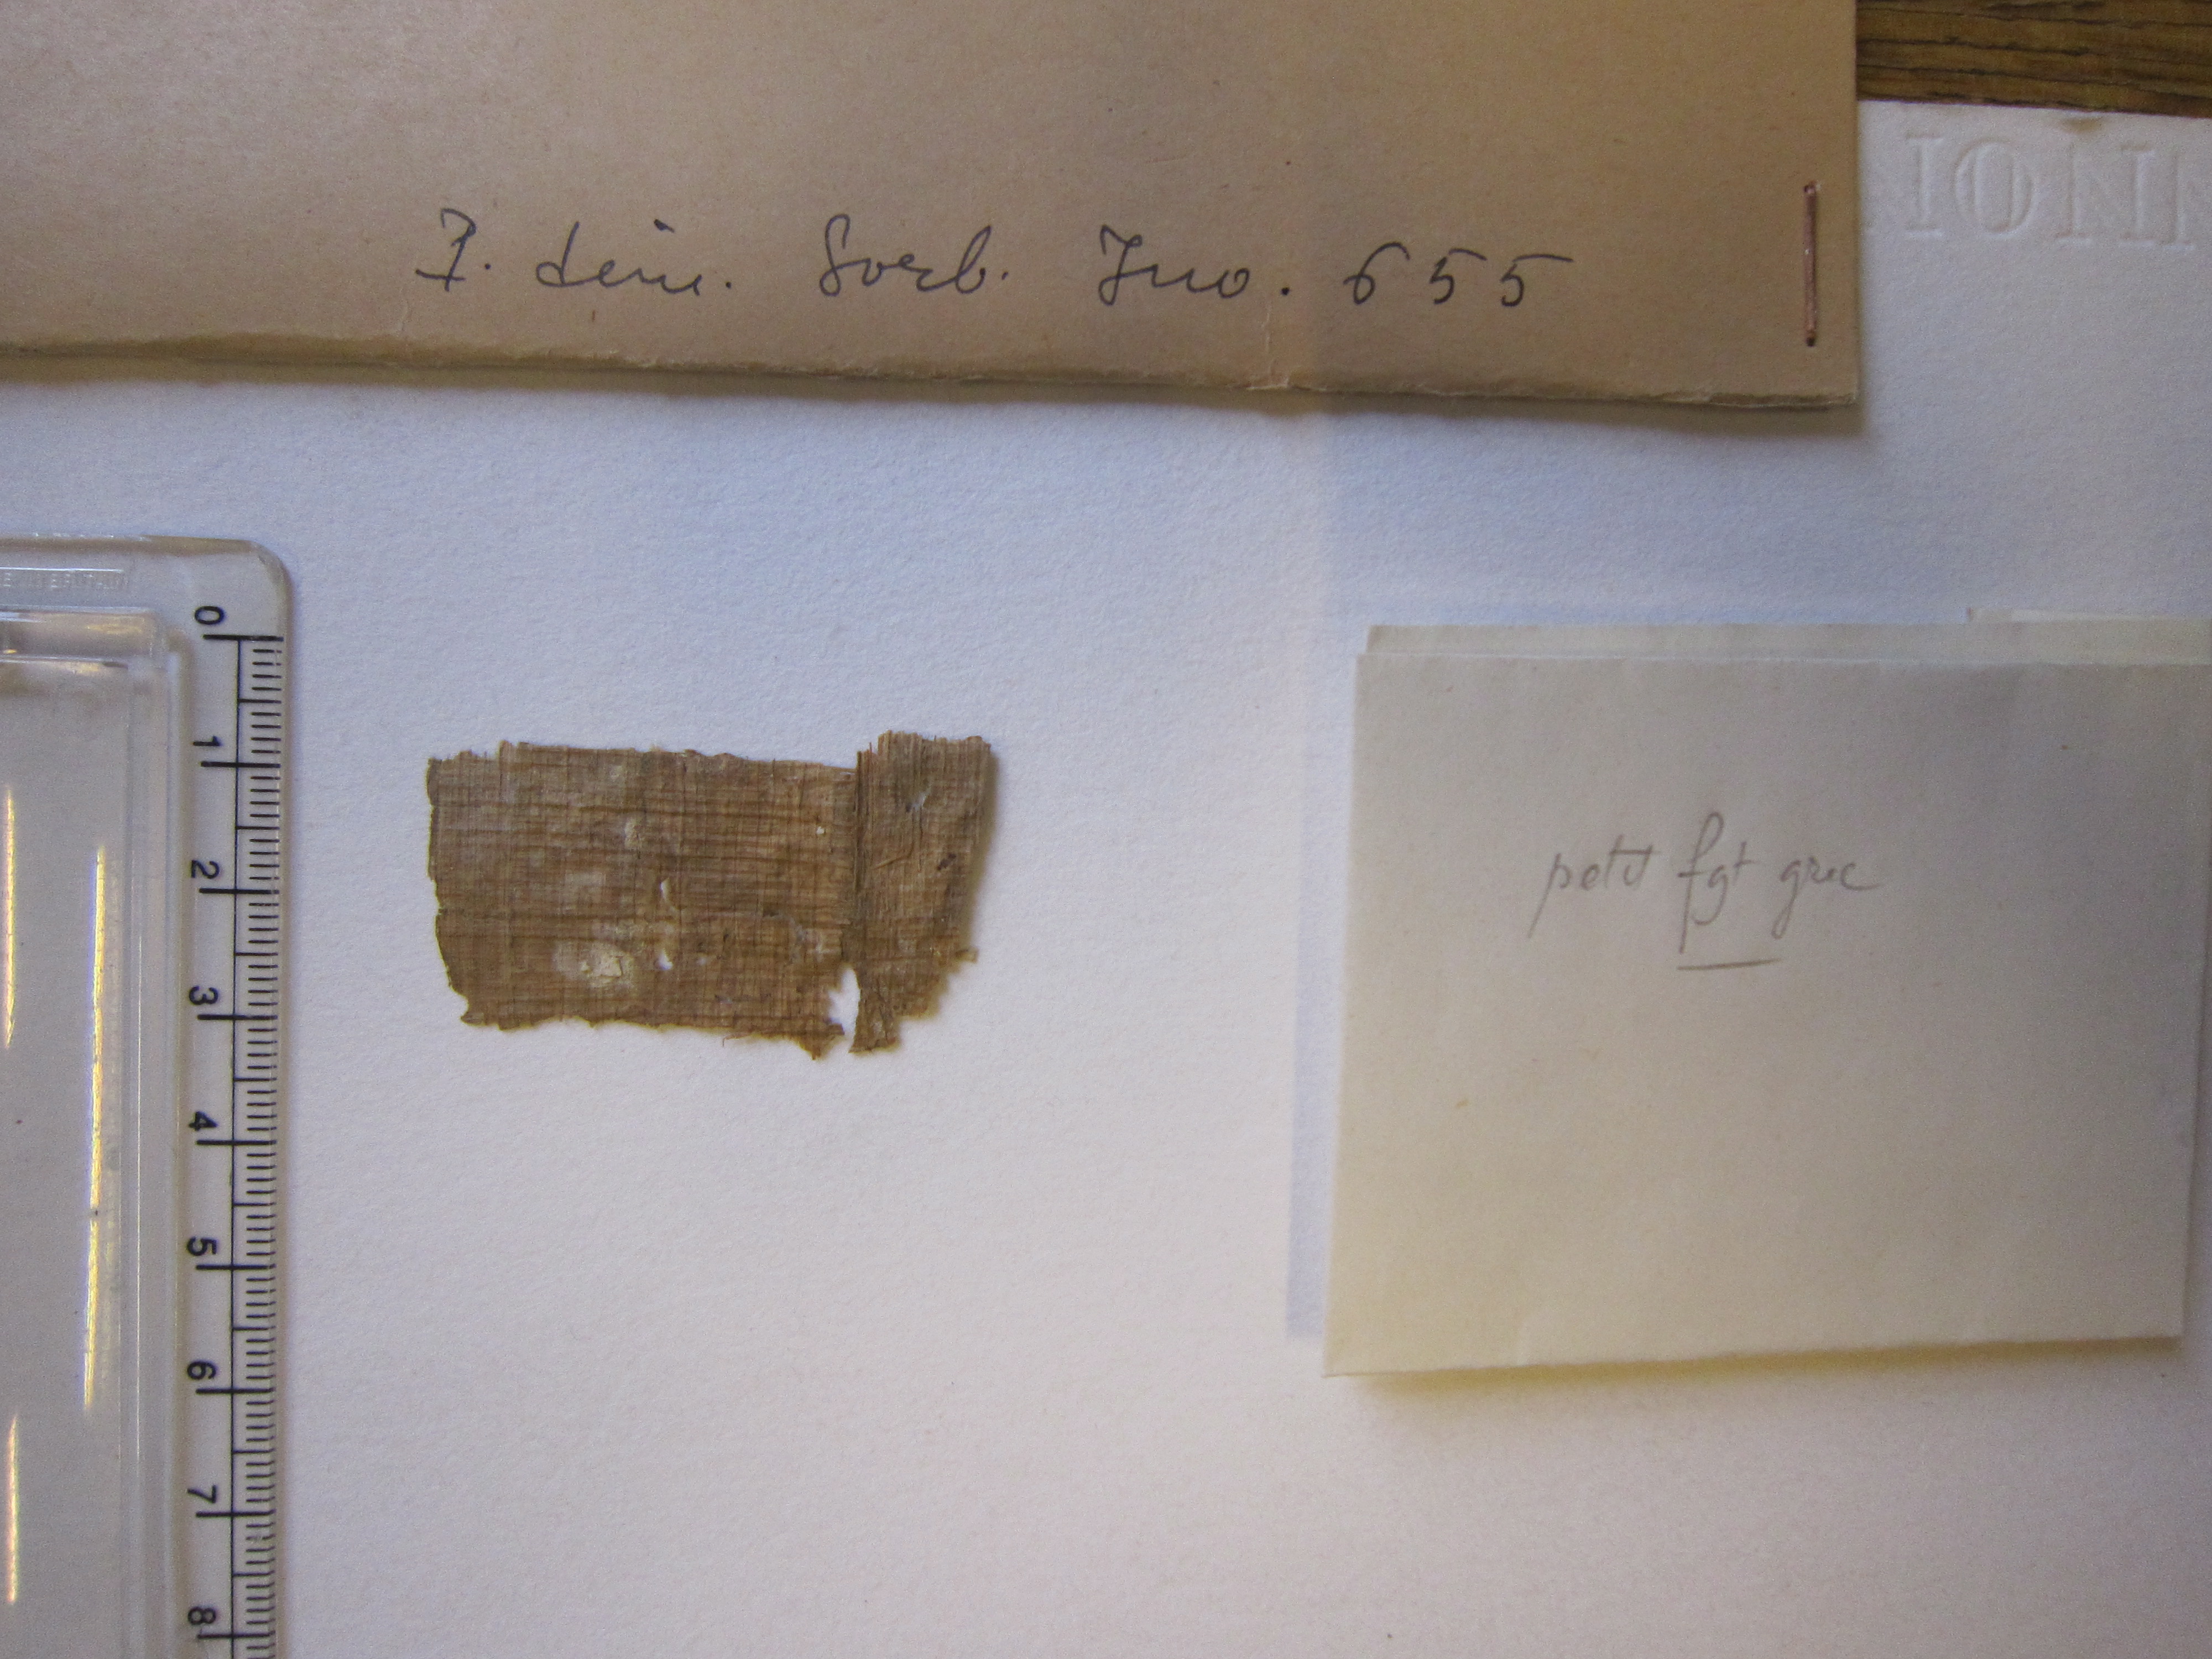 P. dém. Sorb. Inv. 655
0
1
2
3
4
5
6
7
8
petit fgt grec